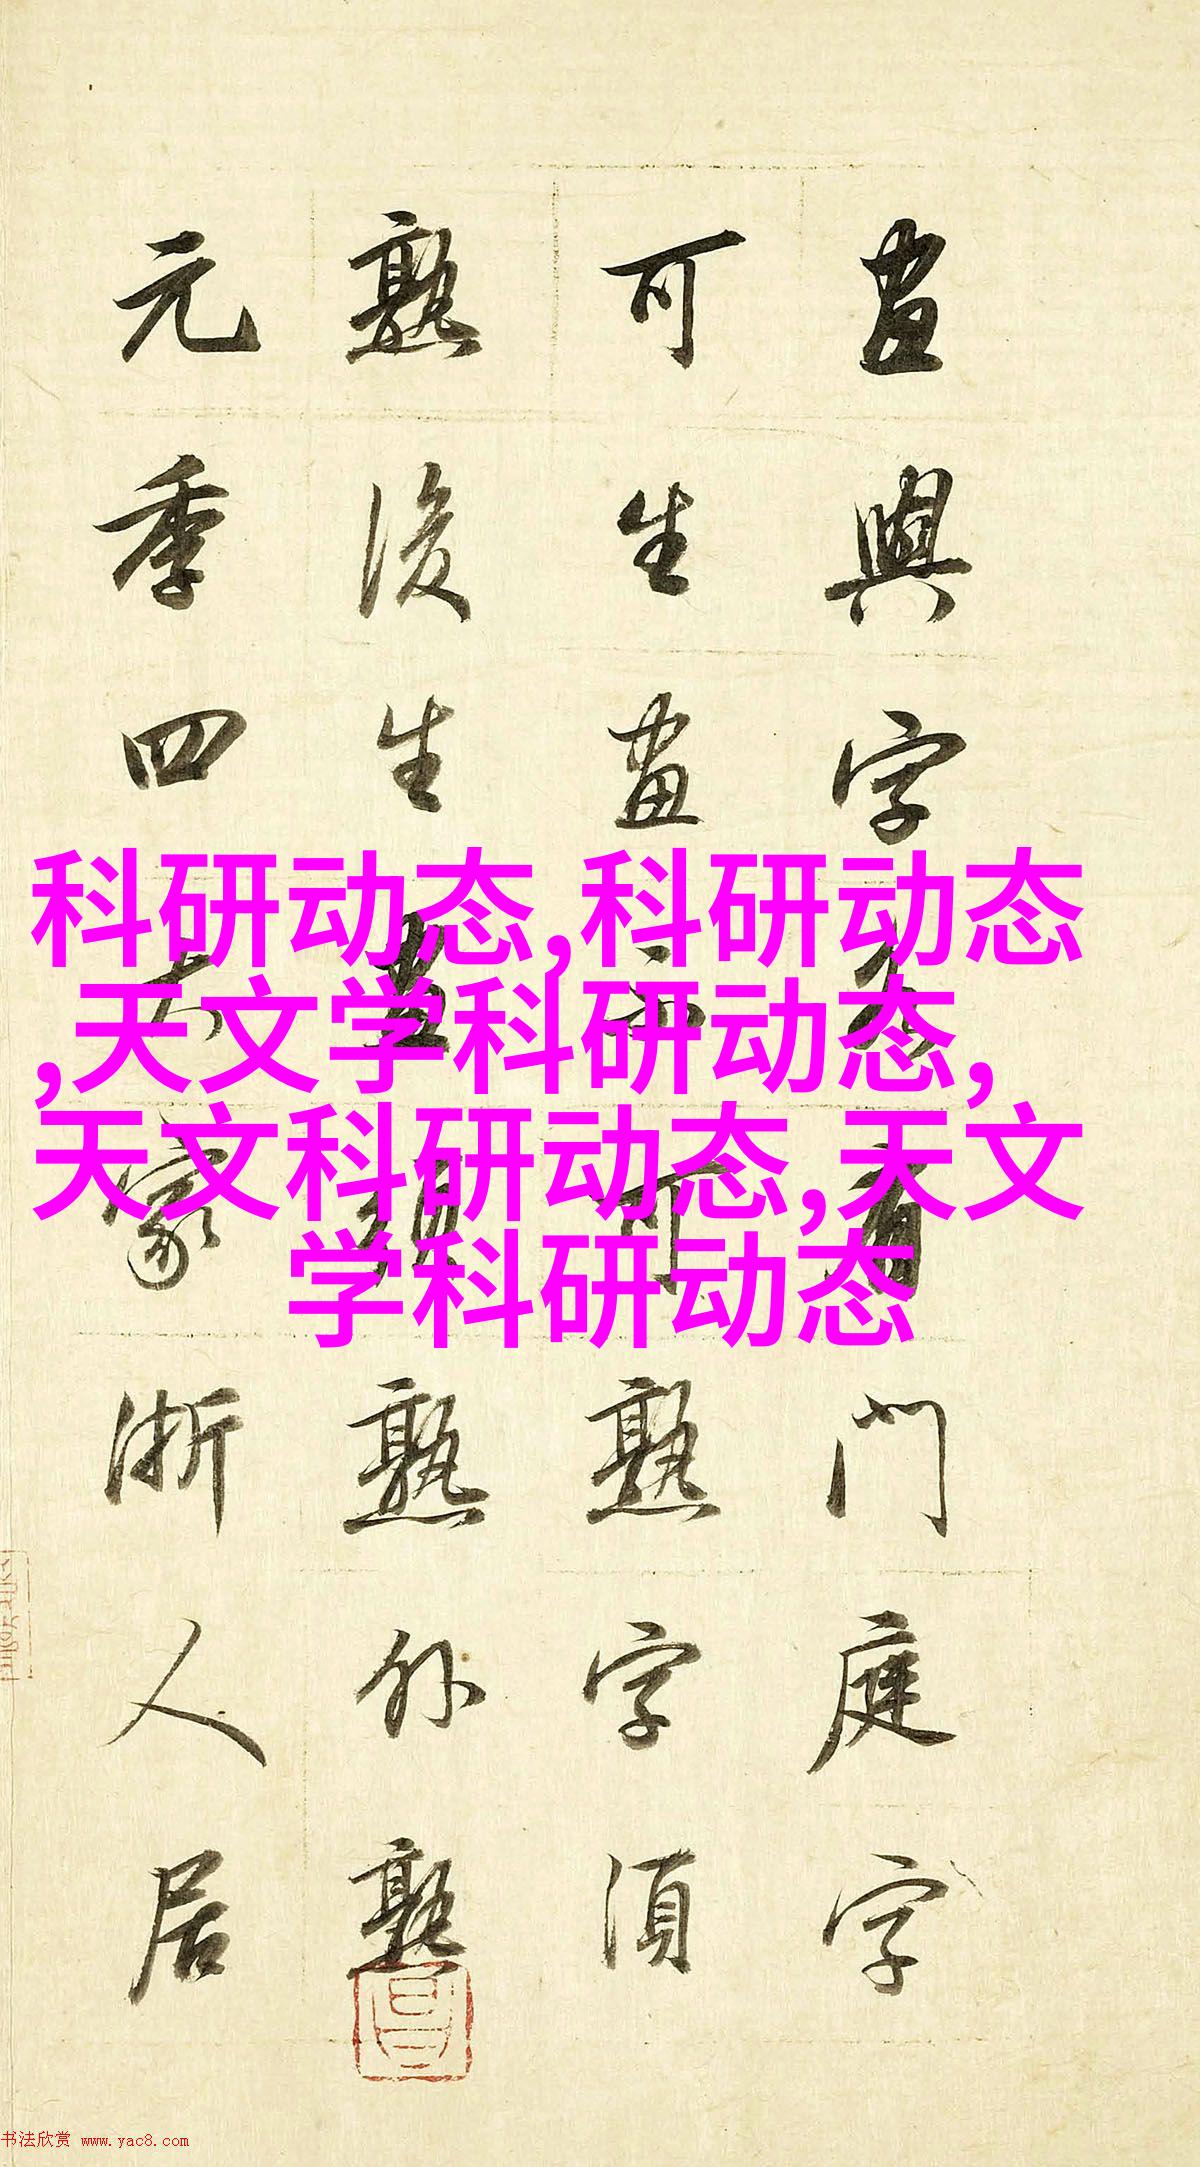 畫與字各有門庭字
可生畫不可熟字須
熟後生畫須熟外熟
元季四大家浙人居
科研动态,科研动态
,天文学科研动态,
天文科研动态,天文
学科研动态
书法欣赏 www.yac8.com